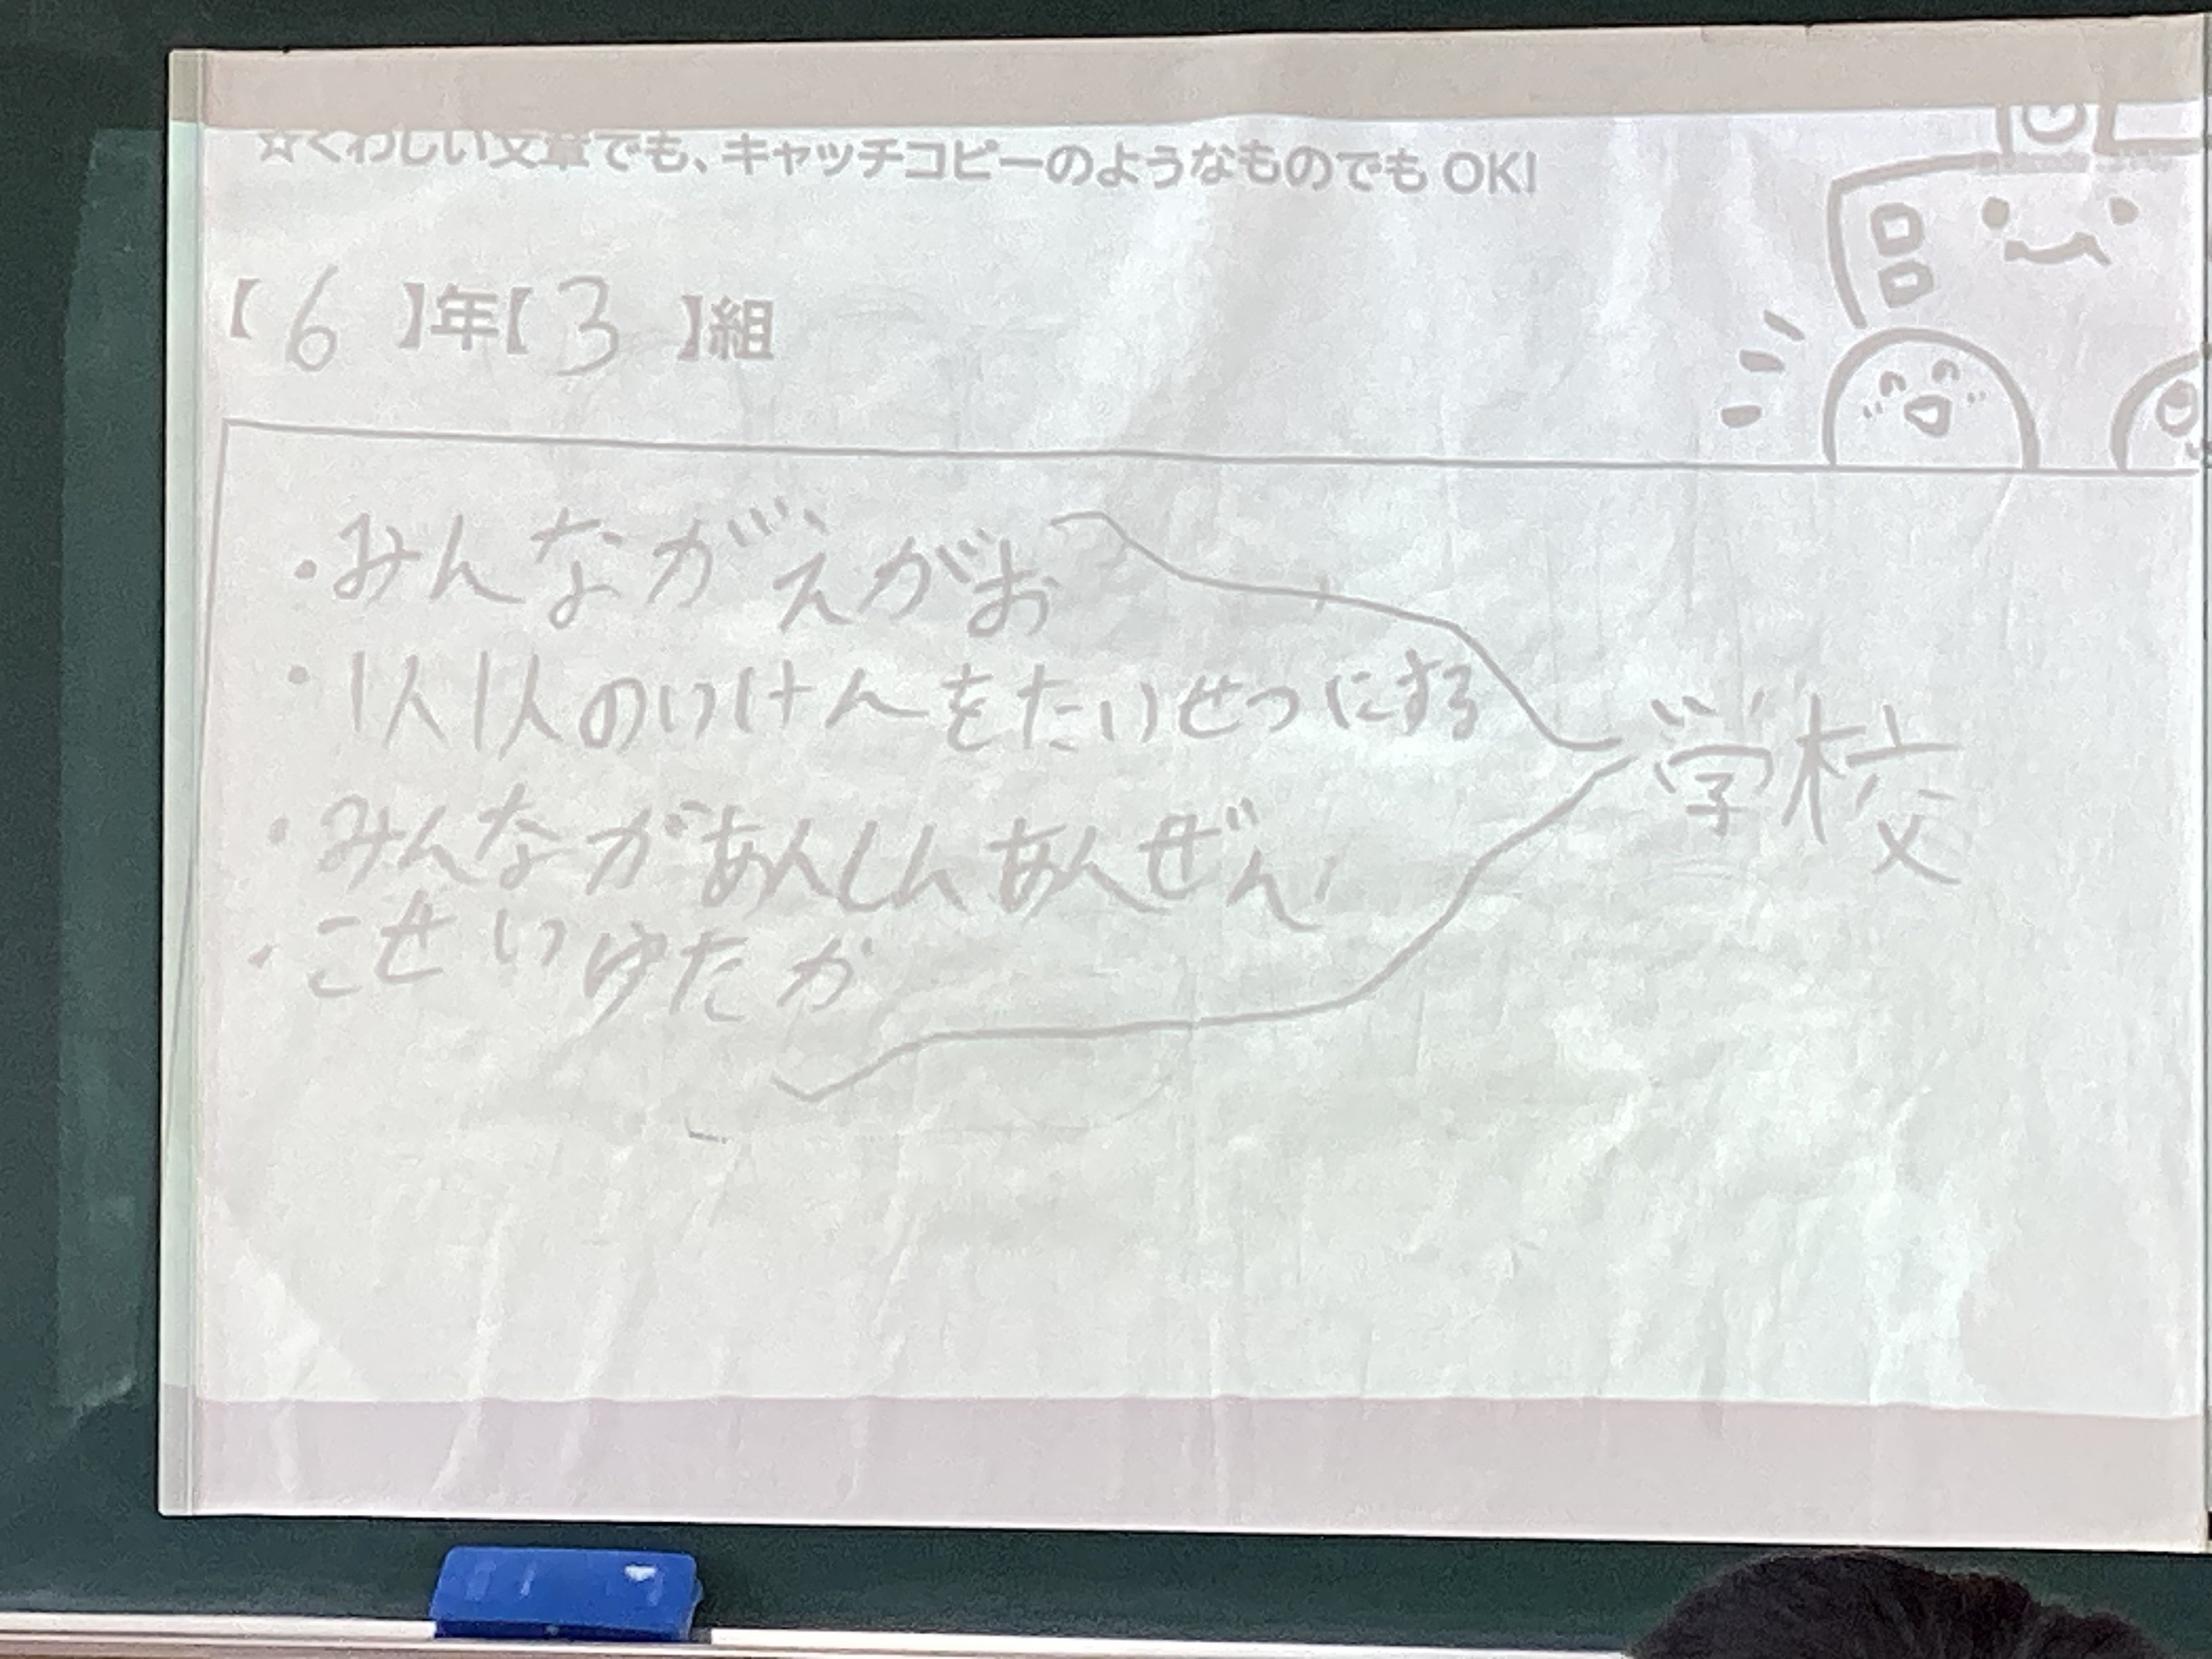 ☆くわしい文章でも、キャッチコピーのようなものでもOK!
【6】年【3】組
・みんながえがお
・1人1人のいけんをたいせつにする
・みんながあんしんあんぜん
・こせいゆたか
学校